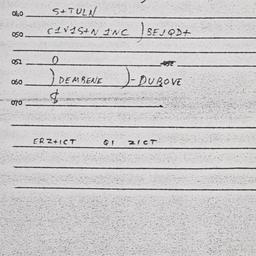 040 S+TULN
050 C1V1S+N 1NC )BEJQD+
052 0
060 )DEMBENE )-DUBOVE
070 $
ERZ+1CT Q1 21CT